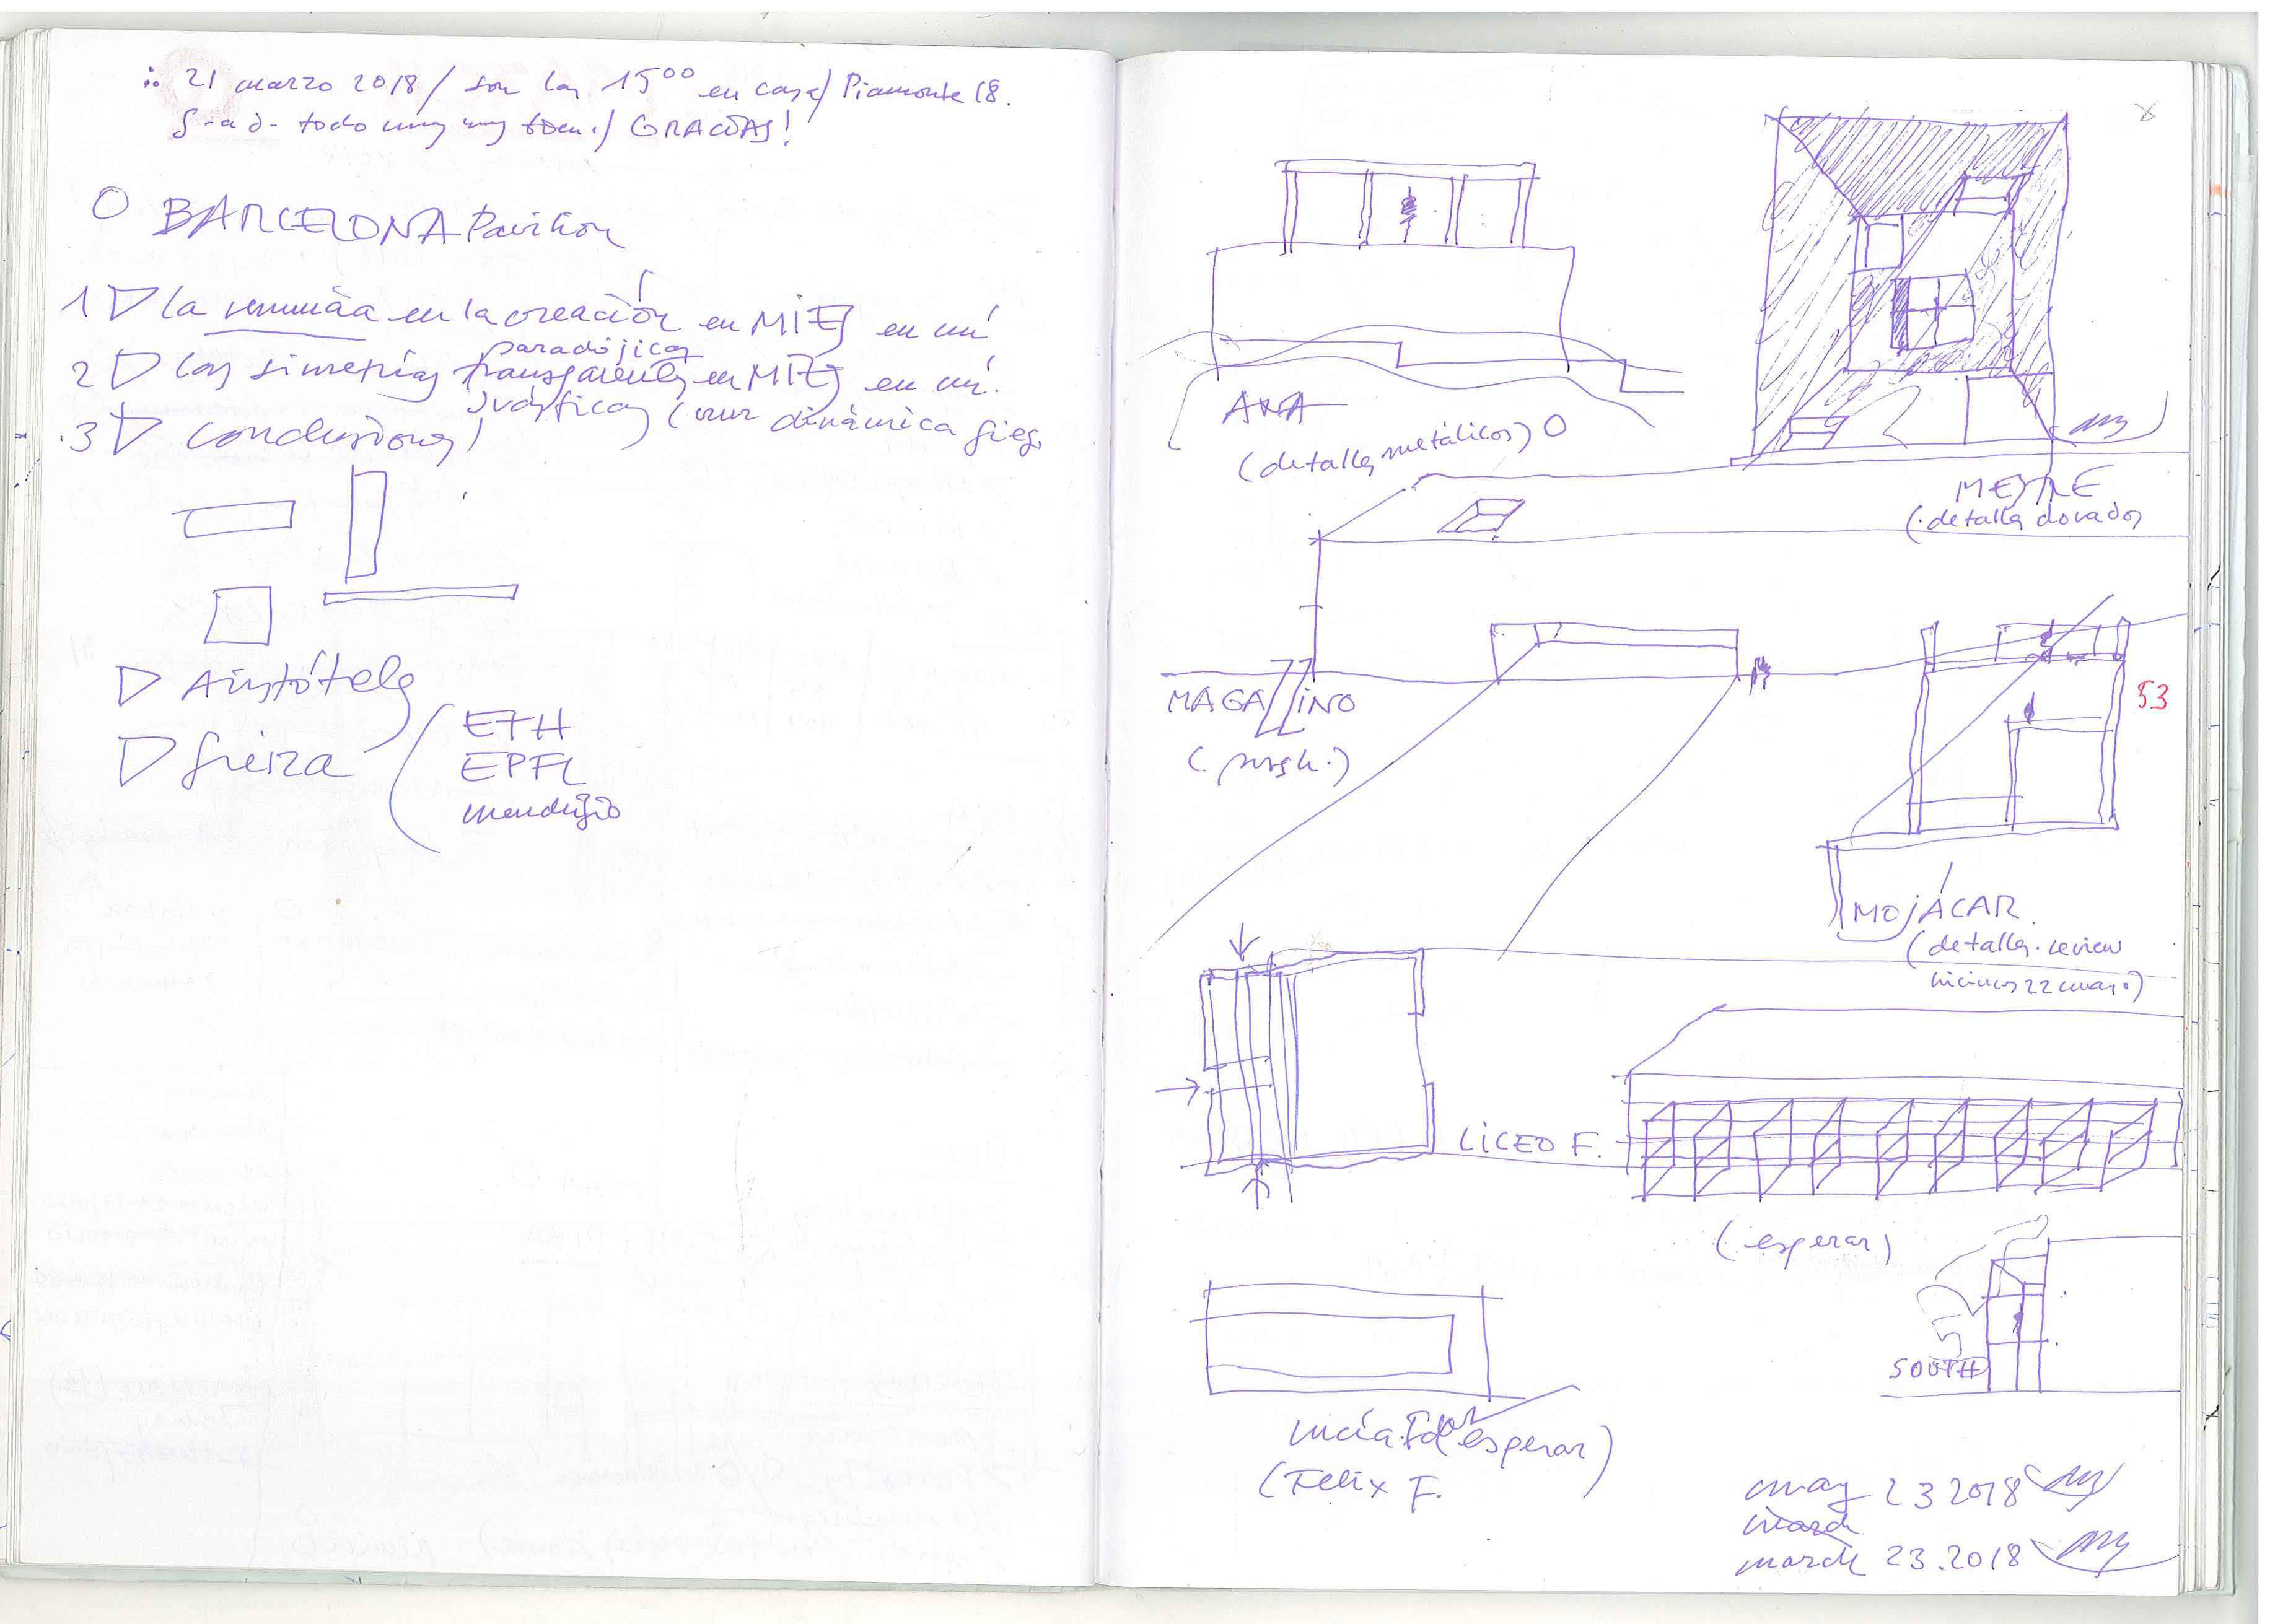 21 marzo 2018 / son las 15⁰⁰ en casa / Piamonte 18.
todo muy muy bien :/ GRACIAS!
O BARCELONA Pavilion
1 ▷ la renuncia en la creación en MIES en mí
paradójicas
2 ▷ las simetrías transparentes en MIES en mí.
svásticas (una dinámica
3 ▷ conclusiones
▷ Aristóteles
▷ Suiza
ETH
EPFL
mendrisio
ANA
(detalles metálicos) O
MESTRE
(detalles dorados
MAGAZZINO
53
MOJÁCAR
(detalles. review
LICEO F.
(esperar)
SOUTH
(esperar)
(Felix F.
may 23 2018
march
march 23.2018